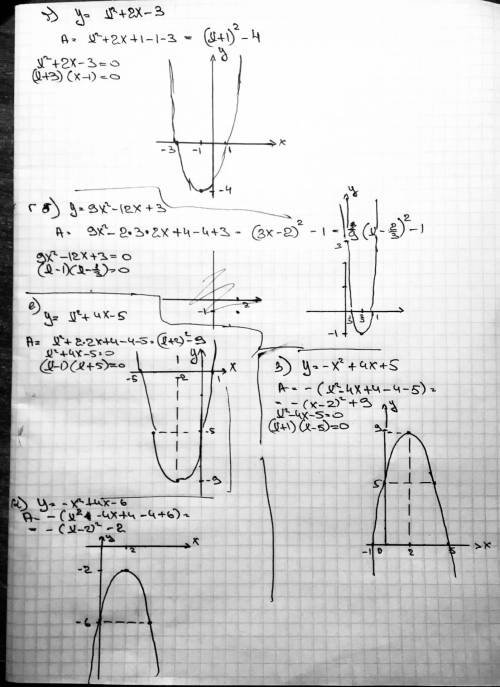 y = x²+2x-3
A = x²+2x+1-1-3 = (x+1)² - 4
x²+2x-3=0
(x+3)(x-1)=0
y
x
-3
-1
1
-4
б) y=9x²-12x+3
A = 9x²-2·3·2x+4-4+3 = (3x-2)² - 1 = 9(x-2/3)² - 1
9x²-12x+3=0
(x-1)(x-1/3)=0
y
3
1
-1
-1
2
е) y = x²+4x-5
A = x²+2·2x+4-4-5=(x+2)²-9
x²+4x-5=0
(x-1)(x+5)=0
y
x
-5
-2
1
-5
-9
з) y=-x²+4x+5
A = -(x²-4x+4-4-5)=
= -(x-2)²+9
x²-4x-5=0
(x+1)(x-5)=0
y
9
5
-1
0
2
5
x
и) y=-x²+4x-6
A= -(x²-4x+4-4+6)=
= -(x-2)²-2
y
x
2
-2
-6